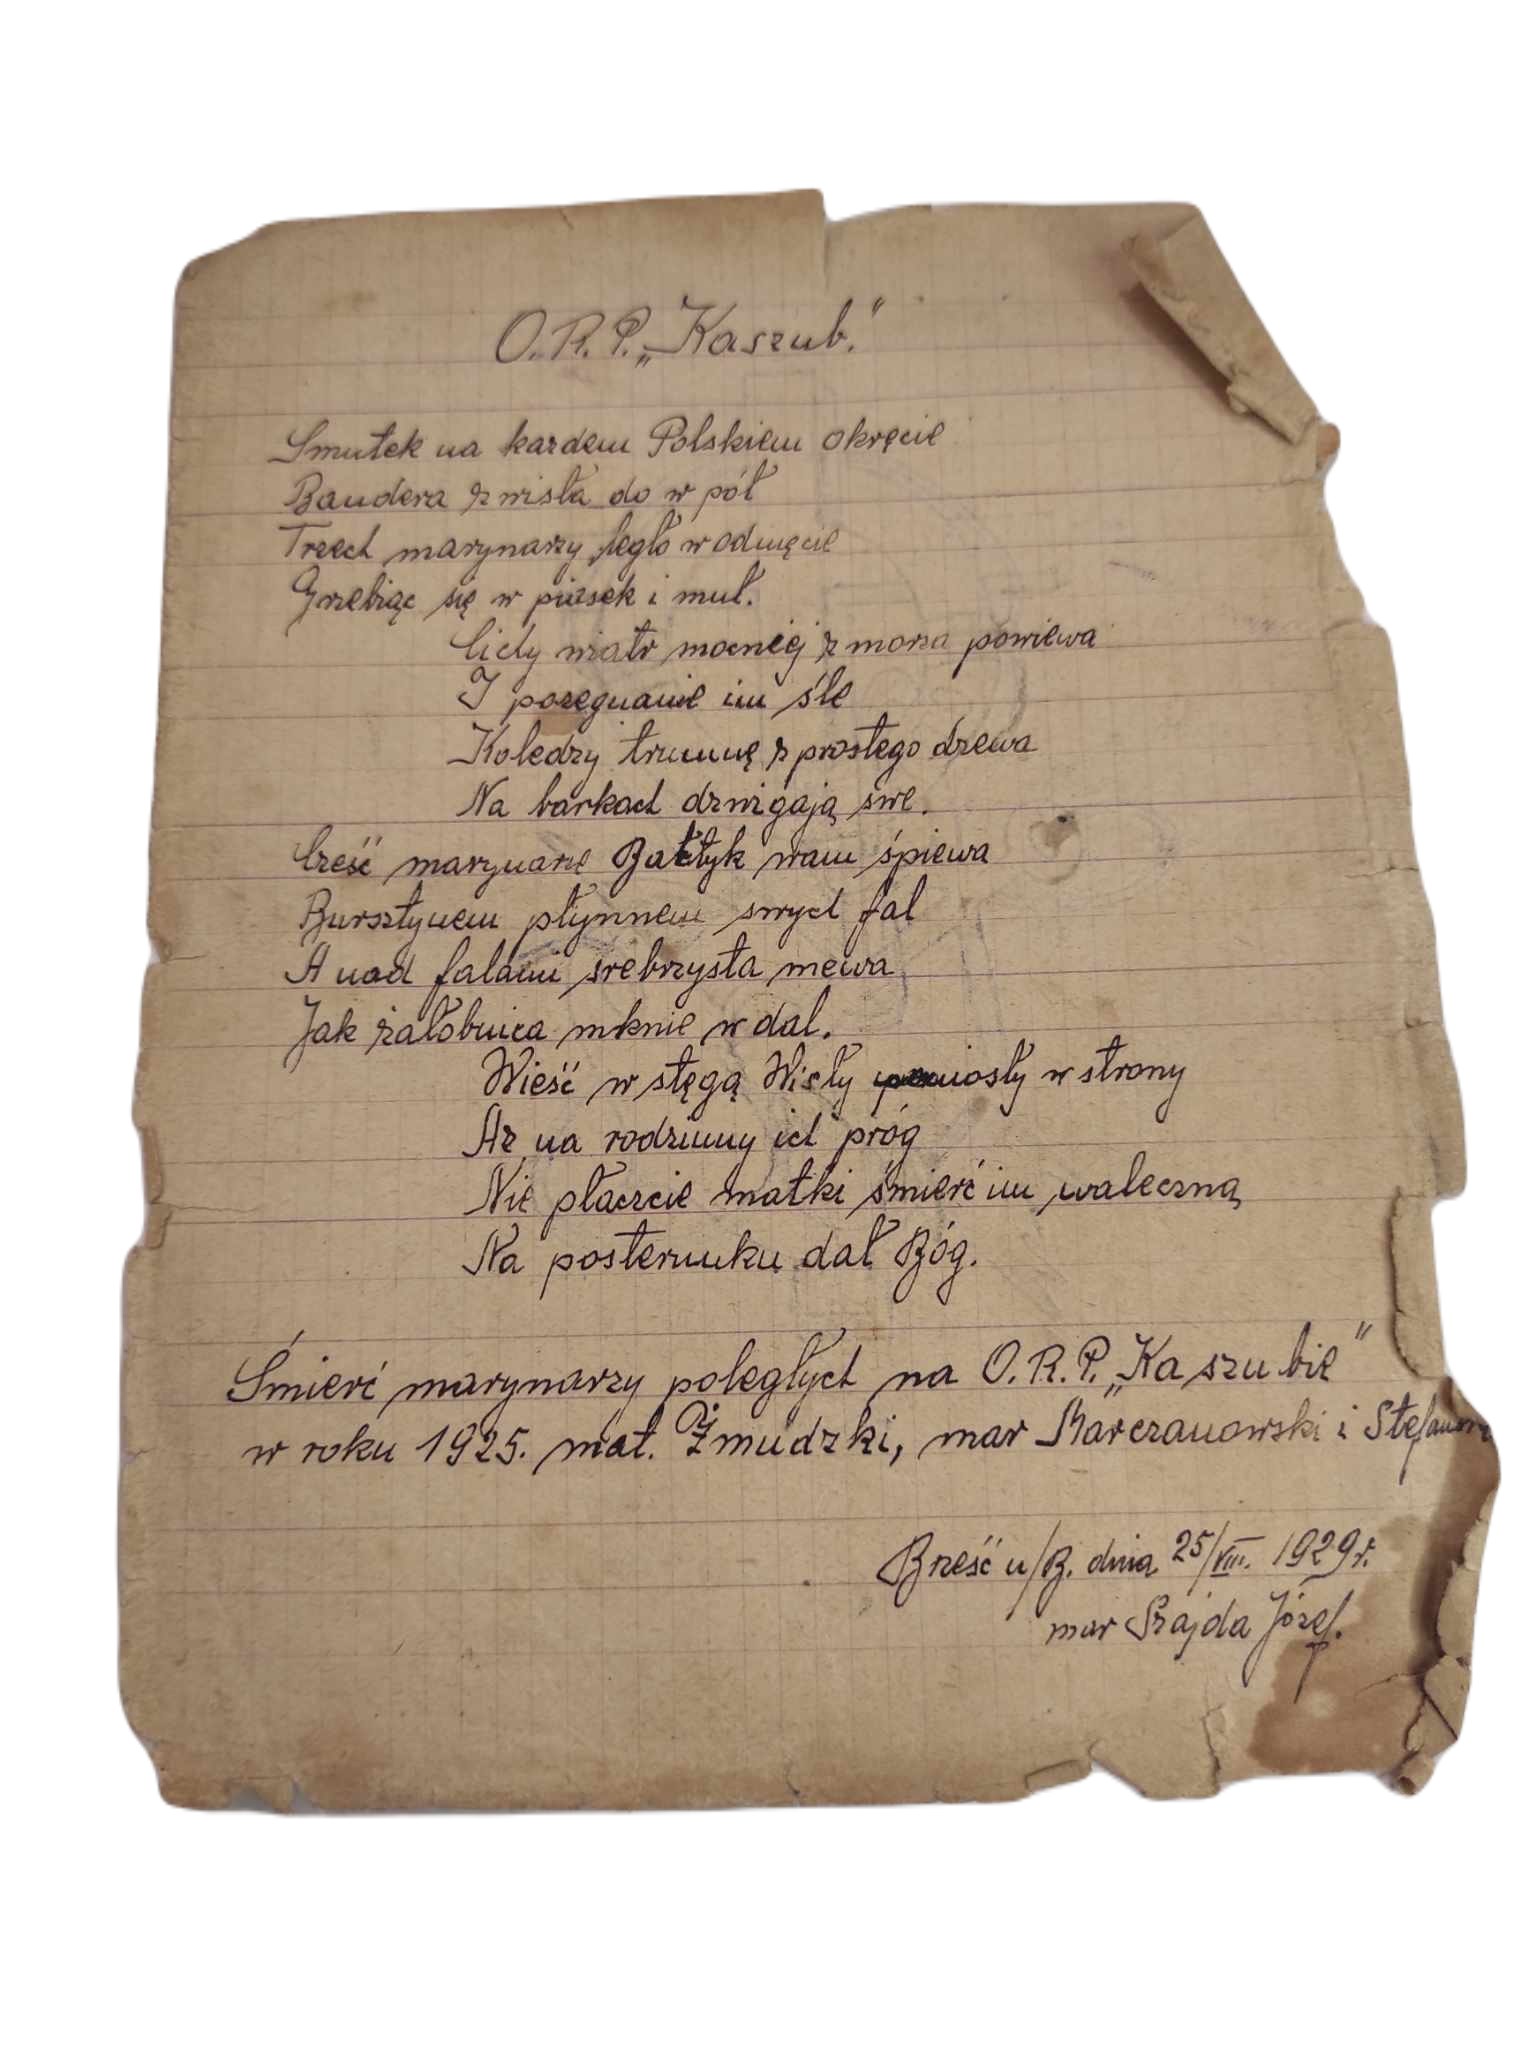 O.R.P. „Kaszub."
Smutek na kazdem Polskiem okręcie
Bandera zwisła do w pół
Trzech marynarzy legło w odmęcie
Grzebiąc się w piasek i muł.
Cichy wiatr mocniej z morza powiewa
I pozegnanie im śle
Koledzy trumnę z prostego drzewa
Na barkach dzwigają swe.
Cześć marynarze Bałtyk wam śpiewa
Bursztynem płynnem swych fal
A nad falami srebrzysta mewa
Jak załobnica mknie w dal.
Wieść w stęgą Wisły poniosły w strony
Az na rodzinny ich próg
Nie płaczcie matki śmierć im waleczną
Na posterunku dał Bóg.
Śmierć marynarzy poległych na O.R.P. „Kaszubie"
w roku 1925. mat. Żmudzki, mar Marczanowski i
Brześć n/B. dnia 25/VIII. 1929 r.
mar Szajda Józef.